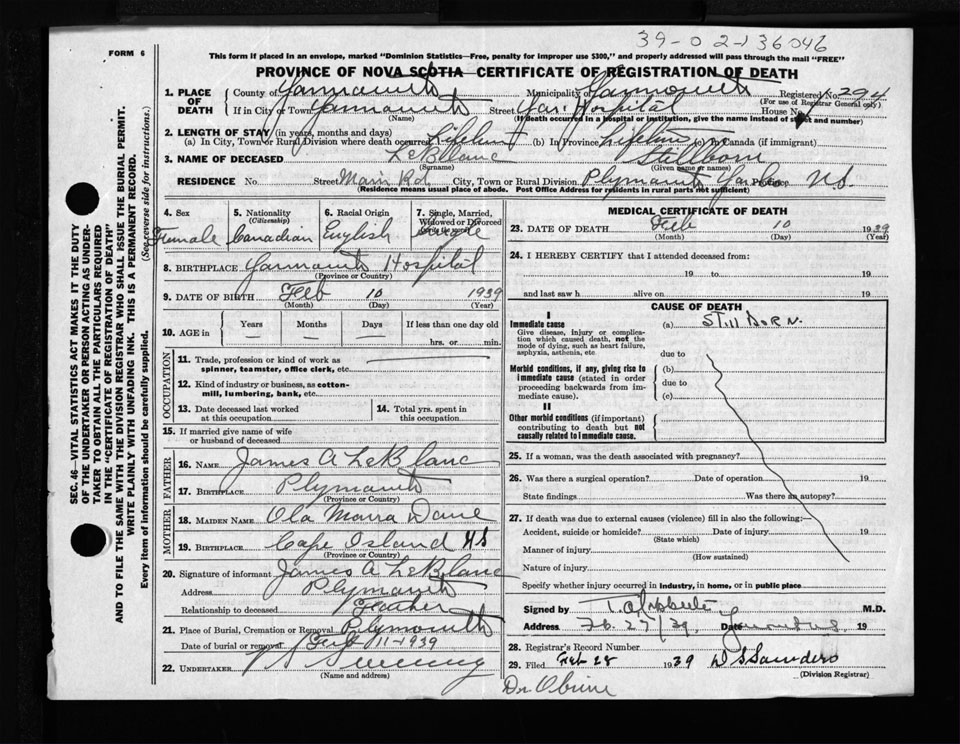 39-0 2-136046
FORM 6
This form if placed in an envelope, marked "Dominion Statistics—Free, penalty for improper use $300," and properly addressed will pass through the mail "FREE"
PROVINCE OF NOVA SCOTIA—CERTIFICATE OF REGISTRATION OF DEATH
1. PLACE OF DEATH
County of Yarmouth Municipality of Yarmouth Registered No. 294
(For use of Registrar General only)
If in City or Town Yarmouth Street Yar. Hospital House No.
(Name) (If death occurred in a hospital or institution, give the name instead of street and number)
2. LENGTH OF STAY (in years, months and days)
(a) In City, Town or Rural Division where death occurred (b) In Province (c) In Canada (if immigrant)
3. NAME OF DECEASED LeBlanc Stillborn
(Surname) (Given name or names)
RESIDENCE No. Street Main Rd. City, Town or Rural Division Plymouth Province NS.
(Residence means usual place of abode. Post Office Address for residents in rural parts not sufficient)
4. Sex Female
5. Nationality (Citizenship) Canadian
6. Racial Origin English
7. Single, Married, Widowed or Divorced Single
8. BIRTHPLACE Yarmouth Hospital
(Province or Country)
9. DATE OF BIRTH Feb 10 1939
(Month) (Day) (Year)
10. AGE in Years Months Days If less than one day old
— — — hrs. or min.
OCCUPATION
11. Trade, profession or kind of work as spinner, teamster, office clerk, etc.
12. Kind of industry or business, as cotton-mill, lumbering, bank, etc.
13. Date deceased last worked at this occupation
14. Total yrs. spent in this occupation
15. If married give name of wife or husband of deceased
FATHER
16. NAME James A LeBlanc
17. BIRTHPLACE Plymouth
(Province or Country)
MOTHER
18. MAIDEN NAME Ola
19. BIRTHPLACE Cape Island NS
(Province or Country)
20. Signature of informant James A LeBlanc
Address Plymouth
Relationship to deceased Father
21. Place of Burial, Cremation or Removal Plymouth
Date of burial or removal Feb 11-1939
22. UNDERTAKER Sweeney
(Name and address)
MEDICAL CERTIFICATE OF DEATH
23. DATE OF DEATH Feb 10 1939
(Month) (Day) (Year)
24. I HEREBY CERTIFY that I attended deceased from:
19 to 19
and last saw h alive on 19
CAUSE OF DEATH
I
Immediate cause
Give disease, injury or complication which caused death, not the mode of dying, such as heart failure, asphyxia, asthenia, etc.
(a) Still Born.
due to
Morbid conditions, if any, giving rise to immediate cause (stated in order proceeding backwards from immediate cause).
(b)
due to
(c)
II
Other morbid conditions (if important) contributing to death but not causally related to immediate cause.
25. If a woman, was the death associated with pregnancy?
26. Was there a surgical operation? Date of operation 19
State findings Was there an autopsy?
27. If death was due to external causes (violence) fill in also the following:—
Accident, suicide or homicide? Date of injury 19
(State which)
Manner of injury
(How sustained)
Nature of injury
Specify whether injury occurred in industry, in home, or in public place
Signed by M.D.
Address Feb. 27/39. Date 19
28. Registrar's Record Number
29. Filed Feb 28 1939 D S Saunders
(Division Registrar)
Dr. O'Brien
SEC. 46—VITAL STATISTICS ACT MAKES IT THE DUTY
OF THE UNDERTAKER OR PERSON ACTING AS UNDER-
TAKER TO OBTAIN ALL THE PARTICULARS REQUIRED
IN THE "CERTIFICATE OF REGISTRATION OF DEATH"
AND TO FILE THE SAME WITH THE DIVISION REGISTRAR WHO SHALL ISSUE THE BURIAL PERMIT.
WRITE PLAINLY WITH UNFADING INK. THIS IS A PERMANENT RECORD.
Every item of information should be carefully supplied. (See reverse side for instructions.)